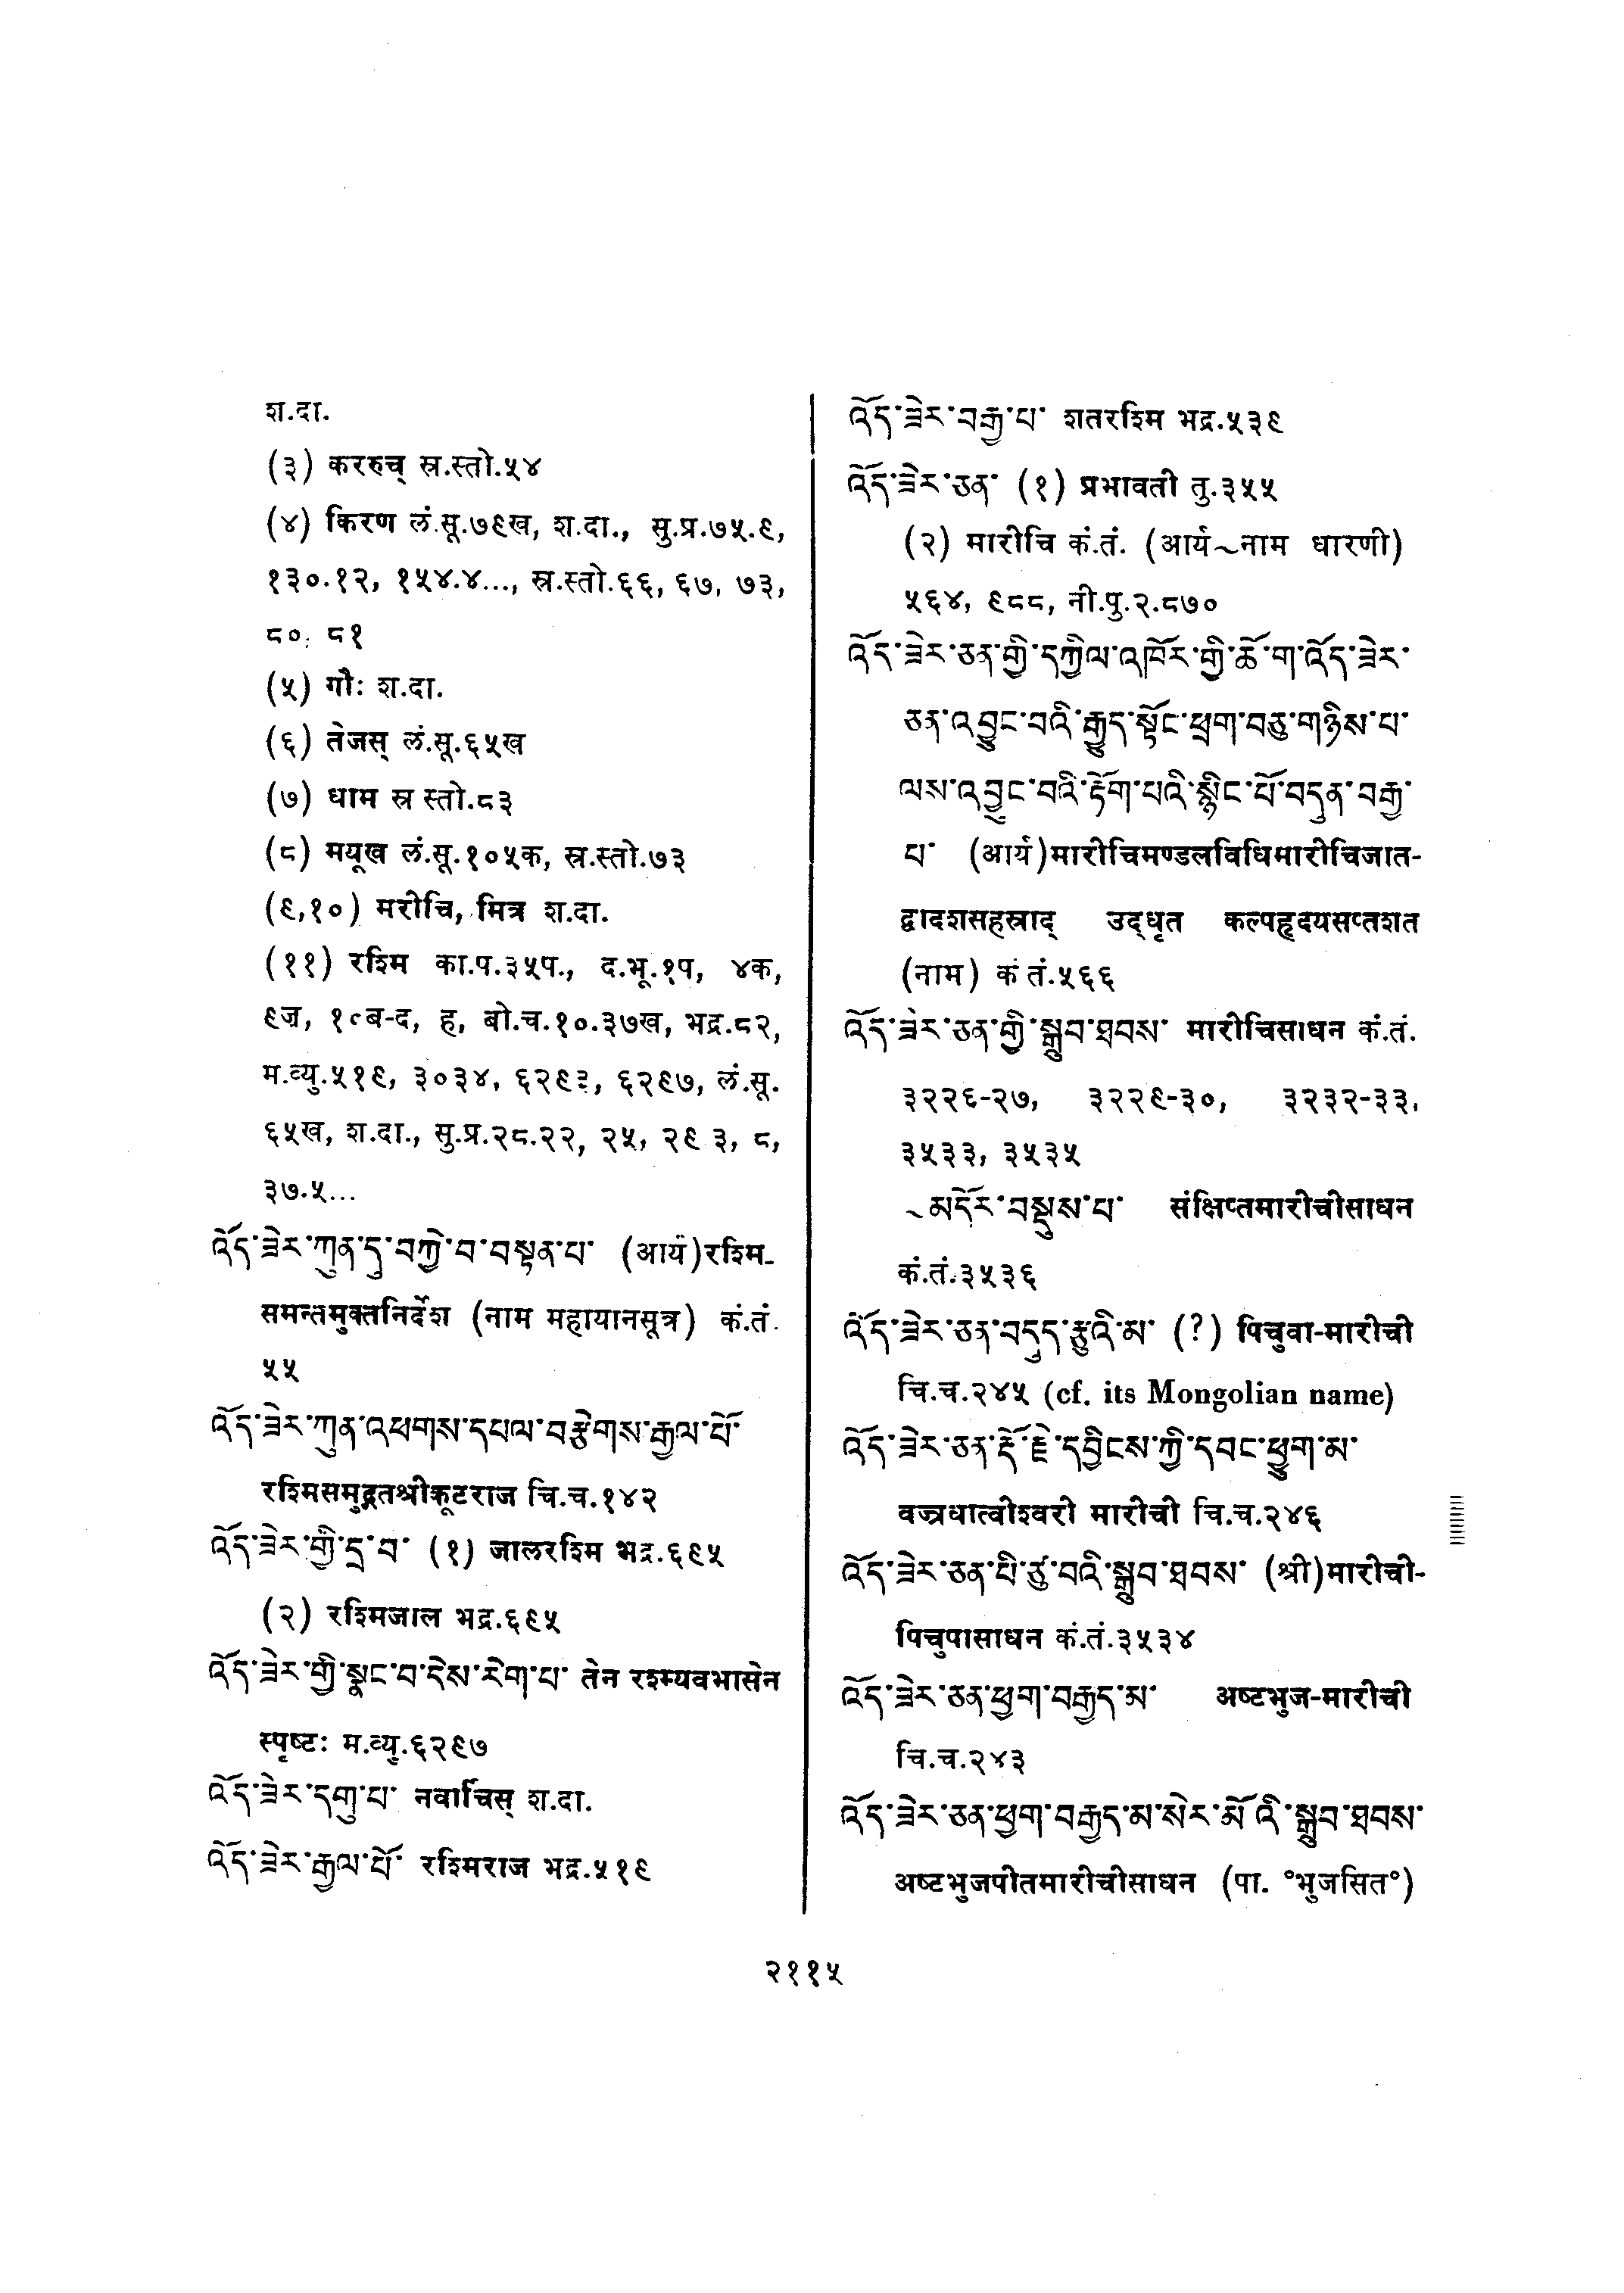 श.दा.
(३) कररुच् स्र.स्तो.५४
(४) किरण लं.सू.७९ख, श.दा., सु.प्र.७५.९,
१३०.१२, १५४.४..., स्र.स्तो.६६, ६७, ७३,
८०, ८१
(५) गौः श.दा.
(६) तेजस् लं.सू.६५ख
(७) धाम स्र स्तो.८३
(८) मयूख लं.सू.१०५क, स्र.स्तो.७३
(९,१०) मरीचि, मित्र श.दा.
(११) रश्मि का.प.३५प., द.भू.१प, ४क,
९ज, १०ब-द, ह, बो.च.१०.३७ख, भद्र.८२,
म.व्यु.५१९, ३०३४, ६२९३, ६२९७, लं.सू.
६५ख, श.दा., सु.प्र.२८.२२, २५, २९ ३, ८,
३७.५...
འོད་ཟེར་ཀུན་དུ་བཀྱེ་བ་བསྟན་པ་ (आर्य)रश्मि-
समन्तमुक्तनिर्देश (नाम महायानसूत्र) कं.तं.
५५
འོད་ཟེར་ཀུན་འཕགས་དཔལ་བརྩེགས་རྒྱལ་པོ་
रश्मिसमुद्गतश्रीकूटराज चि.च.१४२
འོད་ཟེར་གྱི་དྲ་བ་ (१) जालरश्मि भद्र.६९५
(२) रश्मिजाल भद्र.६९५
འོད་ཟེར་གྱི་སྣང་བ་དེས་རེག་པ་ तेन रश्म्यवभासेन
स्पृष्टः म.व्यु.६२९७
འོད་ཟེར་དགུ་པ་ नवार्चिस् श.दा.
འོད་ཟེར་རྒྱལ་པོ་ रश्मिराज भद्र.५१९
འོད་ཟེར་བརྒྱ་པ་ शतरश्मि भद्र.५३९
འོད་ཟེར་ཅན་ (१) प्रभावती तु.३५५
(२) मारीचि कं.तं. (आर्य~नाम धारणी)
५६४, ९८८, नी.पु.२.८७०
འོད་ཟེར་ཅན་གྱི་དཀྱིལ་འཁོར་གྱི་ཆོ་ག་འོད་ཟེར་
ཅན་འབྱུང་བའི་རྒྱུད་སྟོང་ཕྲག་བཅུ་གཉིས་པ་
ལས་འབྱུང་བའི་རྟོག་པའི་སྙིང་པོ་བདུན་བརྒྱ་
པ་ (आर्य)मारीचिमण्डलविधिमारीचिजात-
द्वादशसहस्राद् उद्धृत कल्पहृदयसप्तशत
(नाम) कं तं.५६६
འོད་ཟེར་ཅན་གྱི་སྒྲུབ་ཐབས་ मारीचिसाधन कं.तं.
३२२६-२७, ३२२९-३०, ३२३२-३३,
३५३३, ३५३५
~མདོར་བསྡུས་པ་ संक्षिप्तमारीचीसाधन
कं.तं.३५३६
འོད་ཟེར་ཅན་བདུད་རྩུའི་མ་ (?) पिचुवा-मारीची
चि.च.२४५ (cf. its Mongolian name)
འོད་ཟེར་ཅན་རྡོ་རྗེ་དབྱིངས་ཀྱི་དབང་ཕྱུག་མ་
वज्रधात्वीश्वरी मारीची चि.च.२४६
འོད་ཟེར་ཅན་པི་ཙུ་བའི་སྒྲུབ་ཐབས་ (श्री)मारीची-
पिचुपासाधन कं.तं.३५३४
འོད་ཟེར་ཅན་ཕྱག་བརྒྱད་མ་ अष्टभुज-मारीची
चि.च.२४३
འོད་ཟེར་ཅན་ཕྱག་བརྒྱད་མ་སེར་མོའི་སྒྲུབ་ཐབས་
अष्टभुजपीतमारीचीसाधन (पा. °भुजसित°)
२११५